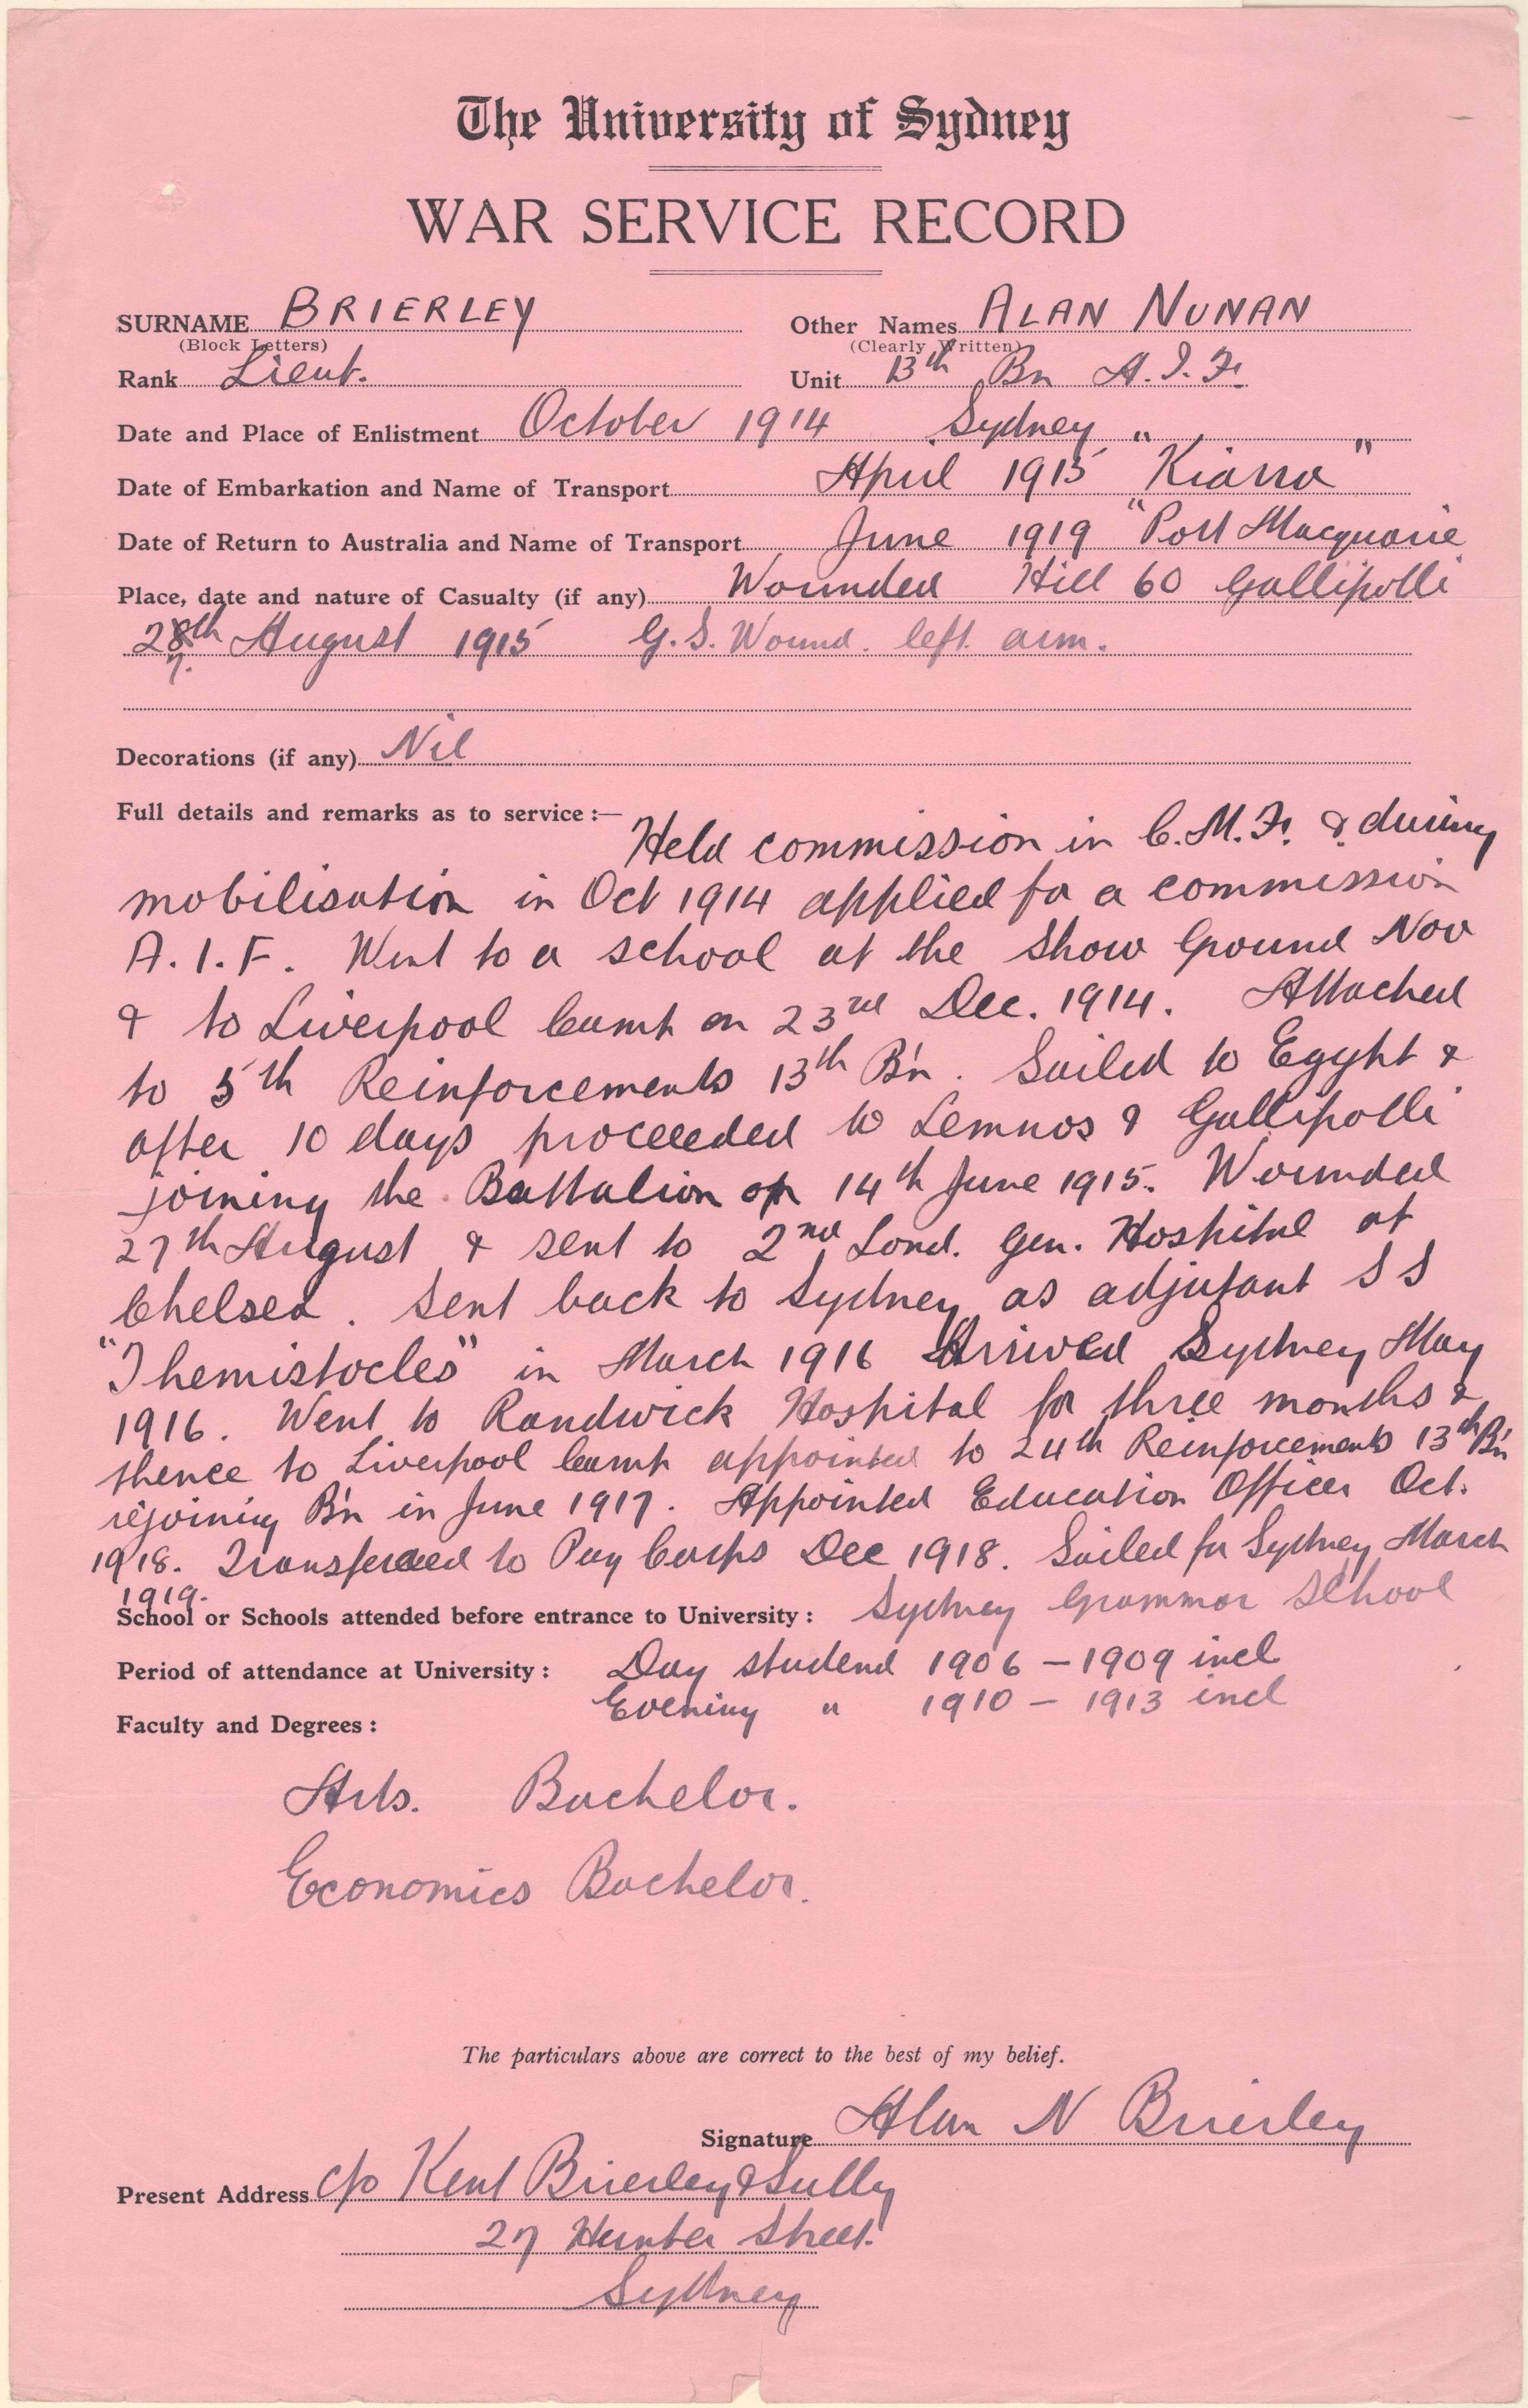 The University of Sydney
WAR SERVICE RECORD
SURNAME BRIERLEY Other Names ALAN NUNAN
(Block Letters) (Clearly Written)
Rank Lieut. Unit 13th Bn A.I.F.
Date and Place of Enlistment October 1914 Sydney
Date of Embarkation and Name of Transport April 1915 "Kiarra"
Date of Return to Australia and Name of Transport June 1919 "Port Macquarie
Place, date and nature of Casualty (if any) Wounded Hill 60 Gallipolli
28th August 1915 G.S. Wound. left arm.
7.
Decorations (if any) Nil
Full details and remarks as to service :—
Held commission in C.M.F. & during
mobilisation in Oct 1914 applied for a commission
A.I.F. Went to a school at the Show Ground Nov
& to Liverpool Camp on 23rd Dec. 1914. Attached
to 5th Reinforcements 13th B'n. Sailed to Egypt &
after 10 days proceeded to Lemnos & Gallipolli
joining the Battalion on 14th June 1915. Wounded
27th August & sent to 2nd Lond. Gen. Hospital at
Chelsea. Sent back to Sydney as adjutant SS
"Themistocles" in March 1916 Arrived Sydney May
1916. Went to Randwick Hospital for three months &
thence to Liverpool Camp appointed to 24th Reinforcements 13th B'n
rejoining B'n in June 1917. Appointed Education Officer Oct.
1918. Transferred to Pay Corps Dec 1918. Sailed for Sydney March
1919.
School or Schools attended before entrance to University : Sydney Grammar School
Period of attendance at University : Day student 1906 – 1909 incl
Evening " 1910 – 1913 incl
Faculty and Degrees :
Arts. Bachelor.
Economics Bachelor.
The particulars above are correct to the best of my belief.
Signature Alan N Brierley
Present Address c/o Kent Brierley & Sully
27 Hunter Street.
Sydney